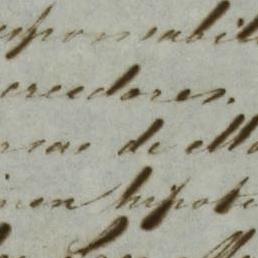 responsabili
acreedores.
rsas de ello
inen hipote